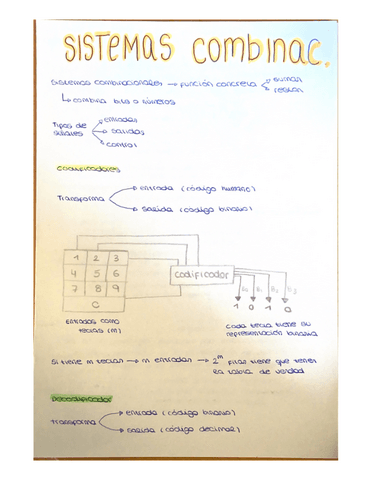 SISTEMAS COMBINAC.
Sistemas combinacionales → función concreta
suman
restan
↳ combina bits o números
Tipos de señales
entradas
salidas
control
Codificadores
Transforma
entrada (código humano)
salida (código binario)
1 2 3
4 5 6
7 8 9
C
codificador
1 0 1 0
Entradas como teclas (m)
Cada tecla tiene su
representación binaria
Si tiene m teclas → m entradas → 2^m filas tiene que tener
la tabla de verdad
Decodificador
transforma
entrada (código binario)
salida (código decimal)